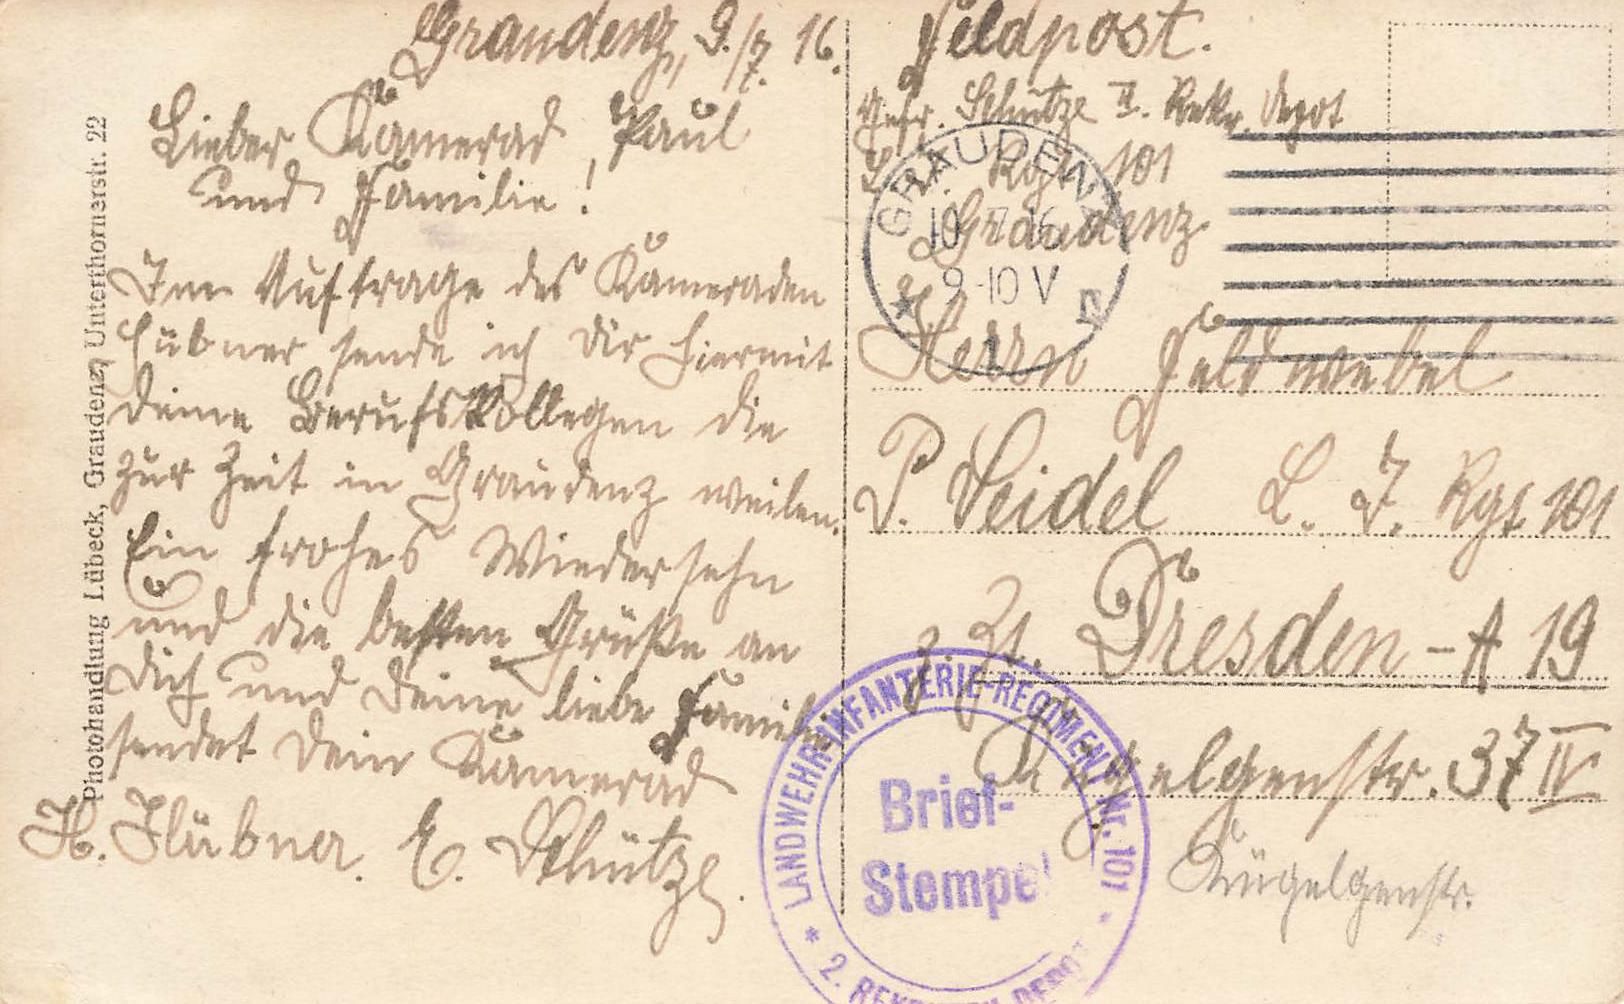 Graudenz, 9./7. 16.
Lieber Kamerad Paul
und Familie!
Im Auftrage des Kameraden
Hübner sende ich Dir hiermit
deine Berufskollegen die
zur Zeit in Graudenz weilen.
Ein frohes Wiedersehn
und die besten Grüße an
Dich und Deine liebe Familie
sendet Dein Kamerad
H. Hübner. E. Schütze.
Photohandlung Lübeck, Graudenz, Unterthornerstr. 22
Feldpost.
Gefr. Schütze II. Rekr. Depot
Rgt 101
Graudenz
GRAUDENZ
10 7 16
9-10 V
Herrn Feldwebel
P. Seidel L. J. Rgt 101
z. Zt. Dresden-A 19
Kügelgenstr. 37 IV
Kügelgenstr.
LANDWEHR-INFANTERIE-REGIMENT Nr. 101
Brief-
Stempel
2. REKRUTEN DEPOT